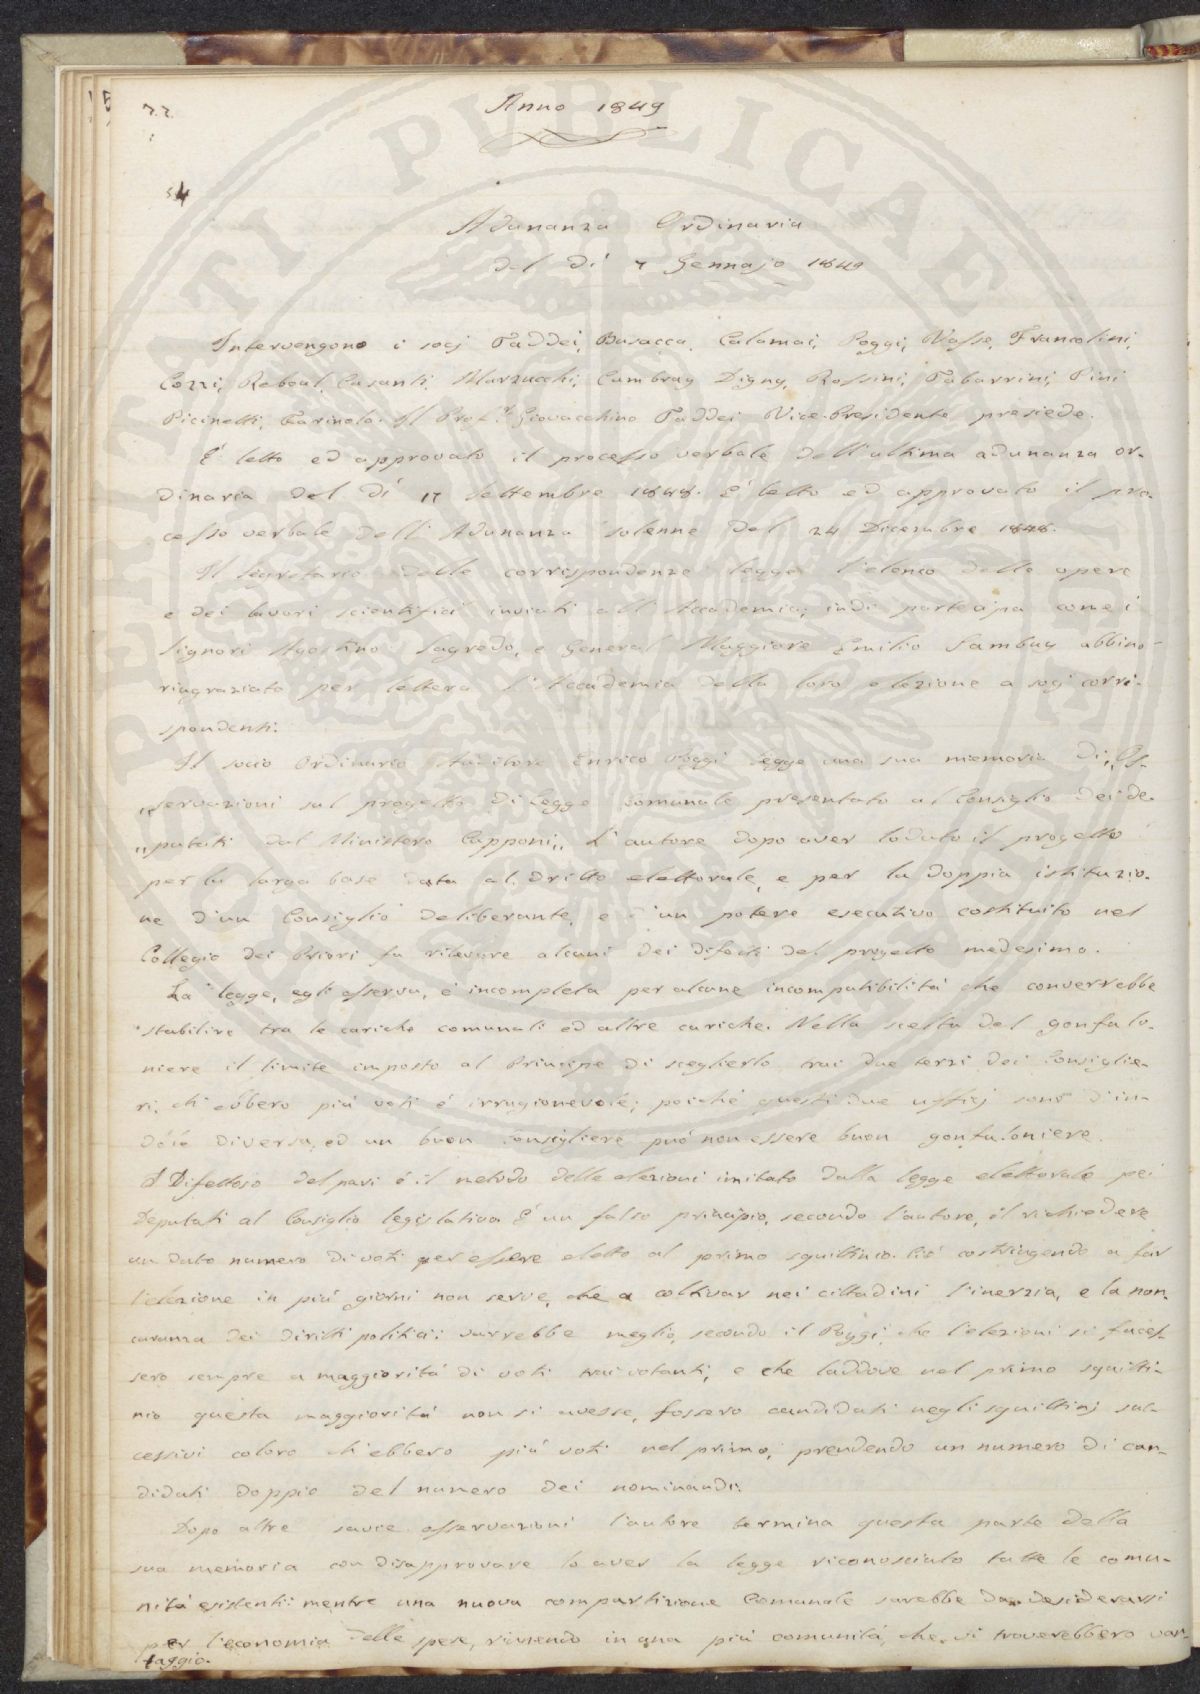 Anno 1849
72
54
Adunanza Ordinaria
del dì 7 Gennajo 1849
Intervengono i socj Taddei, Busacca, Calamai, Poggi, Vasse, Francolini,
Cozzi, Reboul, Casanti, Marzucchi, Cambray Digny, Rossini, Tabarrini, Pini
Picinetti, Farinola. Il Prof.r Giovacchino Taddei Vice-Presidente presiede.
È letto ed approvato il processo verbale dell'ultima adunanza or-
dinaria del dì 17 Settembre 1848. È letto ed approvato il pro-
cesso verbale dell'Adunanza solenne del 24 Dicembre 1848.
Il Segretario delle corrispondenze legge l'elenco delle opere
e dei lavori scientifici inviati all'Accademia; indi partecipa come i
Signori Agostino Sagredo, e General Maggiore Emilio Sambuy abbino
ringraziato per lettera l'Accademia della loro elezione a socj corri-
spondenti.
Il socio Ordinario Auditore Enrico Poggi legge una sua memoria di „Os-
„servazioni sul progetto di Legge Comunale presentato al Consiglio dei de-
„putati dal Ministero Capponi„ L'autore dopo aver lodato il progetto
per la larga base data al dritto elettorale, e per la doppia istituzio-
ne d'un Consiglio deliberante, e d'un potere esecutivo costituito nel
Collegio dei Priori fa rilevare alcuni dei difetti del progetto medesimo.
La legge, egli osserva, è incompleta per alcune incompatibilità che converrebbe
stabilire tra le cariche comunali ed altre cariche. Nella scelta del gonfalo-
niere il limite imposto al Principe di sceglierlo trai due terzi dei Consiglie-
ri, ch'ebbero più voti è irragionevole; poichè questi due ufficj sono d'in-
dole diversa, ed un buon Consigliere può non essere buon gonfaloniere.
Difettoso del pari è il metodo delle elezioni imitato dalla legge elettorale pei
Deputati al Consiglio legislativo. È un falso principio, secondo l'autore, il richiedere
un dato numero di voti per essere eletto al primo squittinio. Ciò costringendo a far
l'elezione in più giorni non serve, che a coltivar nei cittadini l'inerzia, e la non-
curanza dei diritti politici: varrebbe meglio, secondo il Poggi, che l'elezioni si faces-
sero sempre a maggiorità di voti trai votanti, e che laddove nel primo squitti-
nio questa maggiorità non si avesse, fossero candidati negli squittinj suc-
cessivi coloro ch'ebbero più voti nel primo, prendendo un numero di can-
didati doppio del numero dei nominandi.
Dopo altre savie osservazioni l'autore termina questa parte della
sua memoria con disapprovare lo aver la legge riconosciuto tutte le comu-
nità esistenti: mentre una nuova compartizione Comunale sarebbe da desiderarsi
per l'economia delle spese, riunendo in una più comunità, che vi troverebbero van-
taggio.
SPERITATI PUBLICAE